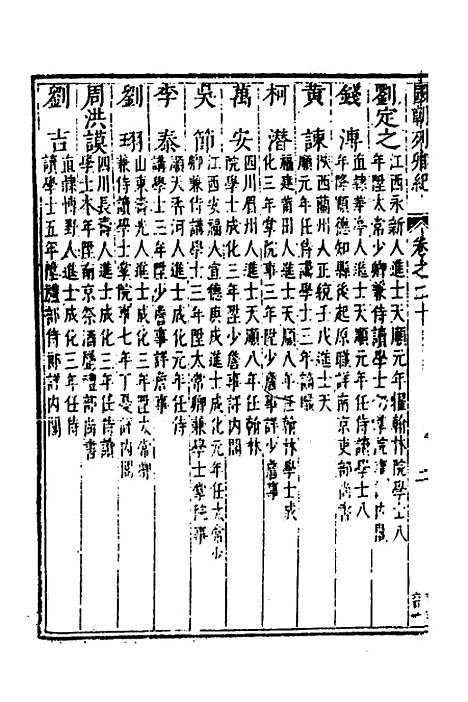 國朝列卿紀 卷之二十
劉定之 江西永新人進士天順元年擢翰林院學士八
年陞太常少卿兼侍讀學士 掌院 詳內閣
錢溥 直隸華亭人進士天順元年任侍讀學士八
年降順德知縣後起原職詳南京吏部尚書
黃諫 陝西蘭州人正統壬戌進士天
順元年任侍講學士三年謫
柯潛 福建莆田人進士天順八年翰林學士成
化三年掌院事三年陞少詹事詳少詹事
萬安 四川眉州人進士天順八年任翰林
院學士成化三年陞少詹事詳內閣
吳節 江西安福人宣德庚戌進士成化元年任太常少
卿兼侍講學士三年陞太常卿兼學士掌院事
李泰 順天香河人進士成化元年任侍
講學士三年陞少詹事詳詹事
劉珝 山東壽光人進士成化三年陞太常卿
兼侍讀學士掌院事七年丁憂詳內閣
周洪謨 四川長寧人進士成化三年任侍讀
學士本年陞南京祭酒歷禮部尚書
劉吉 直隸博野人進士成化三年任侍
讀學士五年陞禮部侍郎詳內閣